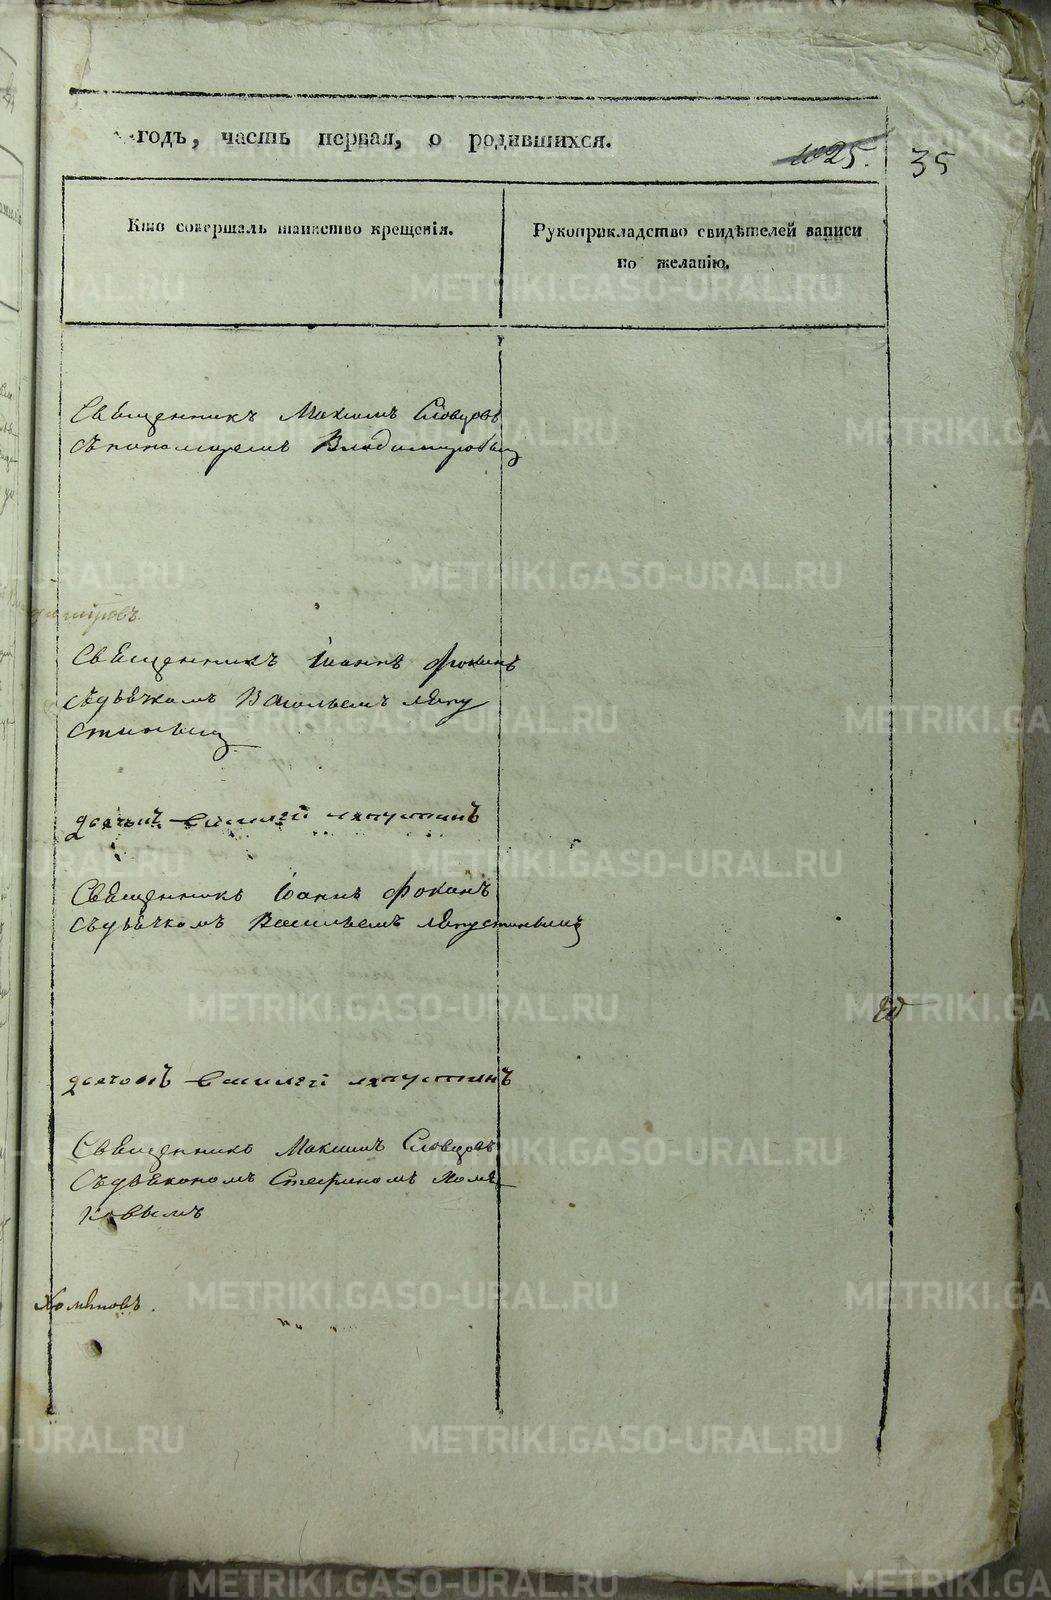 годъ, часть первая, о родившихся.
1025. 35
Кто совершалъ таинство крещенія.
Рукоприкладство свидѣтелей записи
по желанію.
Священникъ Максимъ Словцовъ
съ пономаремъ Владимировым
Священникъ Іоаннъ Фокинъ
съ дьячкомъ Васильемъ Ляпу
стиным
дьячокъ Василей Ляпустинъ
Священникъ Іоаннъ Фокинъ
съ дьячкомъ Васильемъ Ляпустинымъ
дьячокъ Василей Ляпустинъ
Священникъ Максимъ Словцовъ
съ дьякономъ Стефаномъ Хомя
ковымъ
Хомяковъ.
METRIKI.GASO-URAL.RU